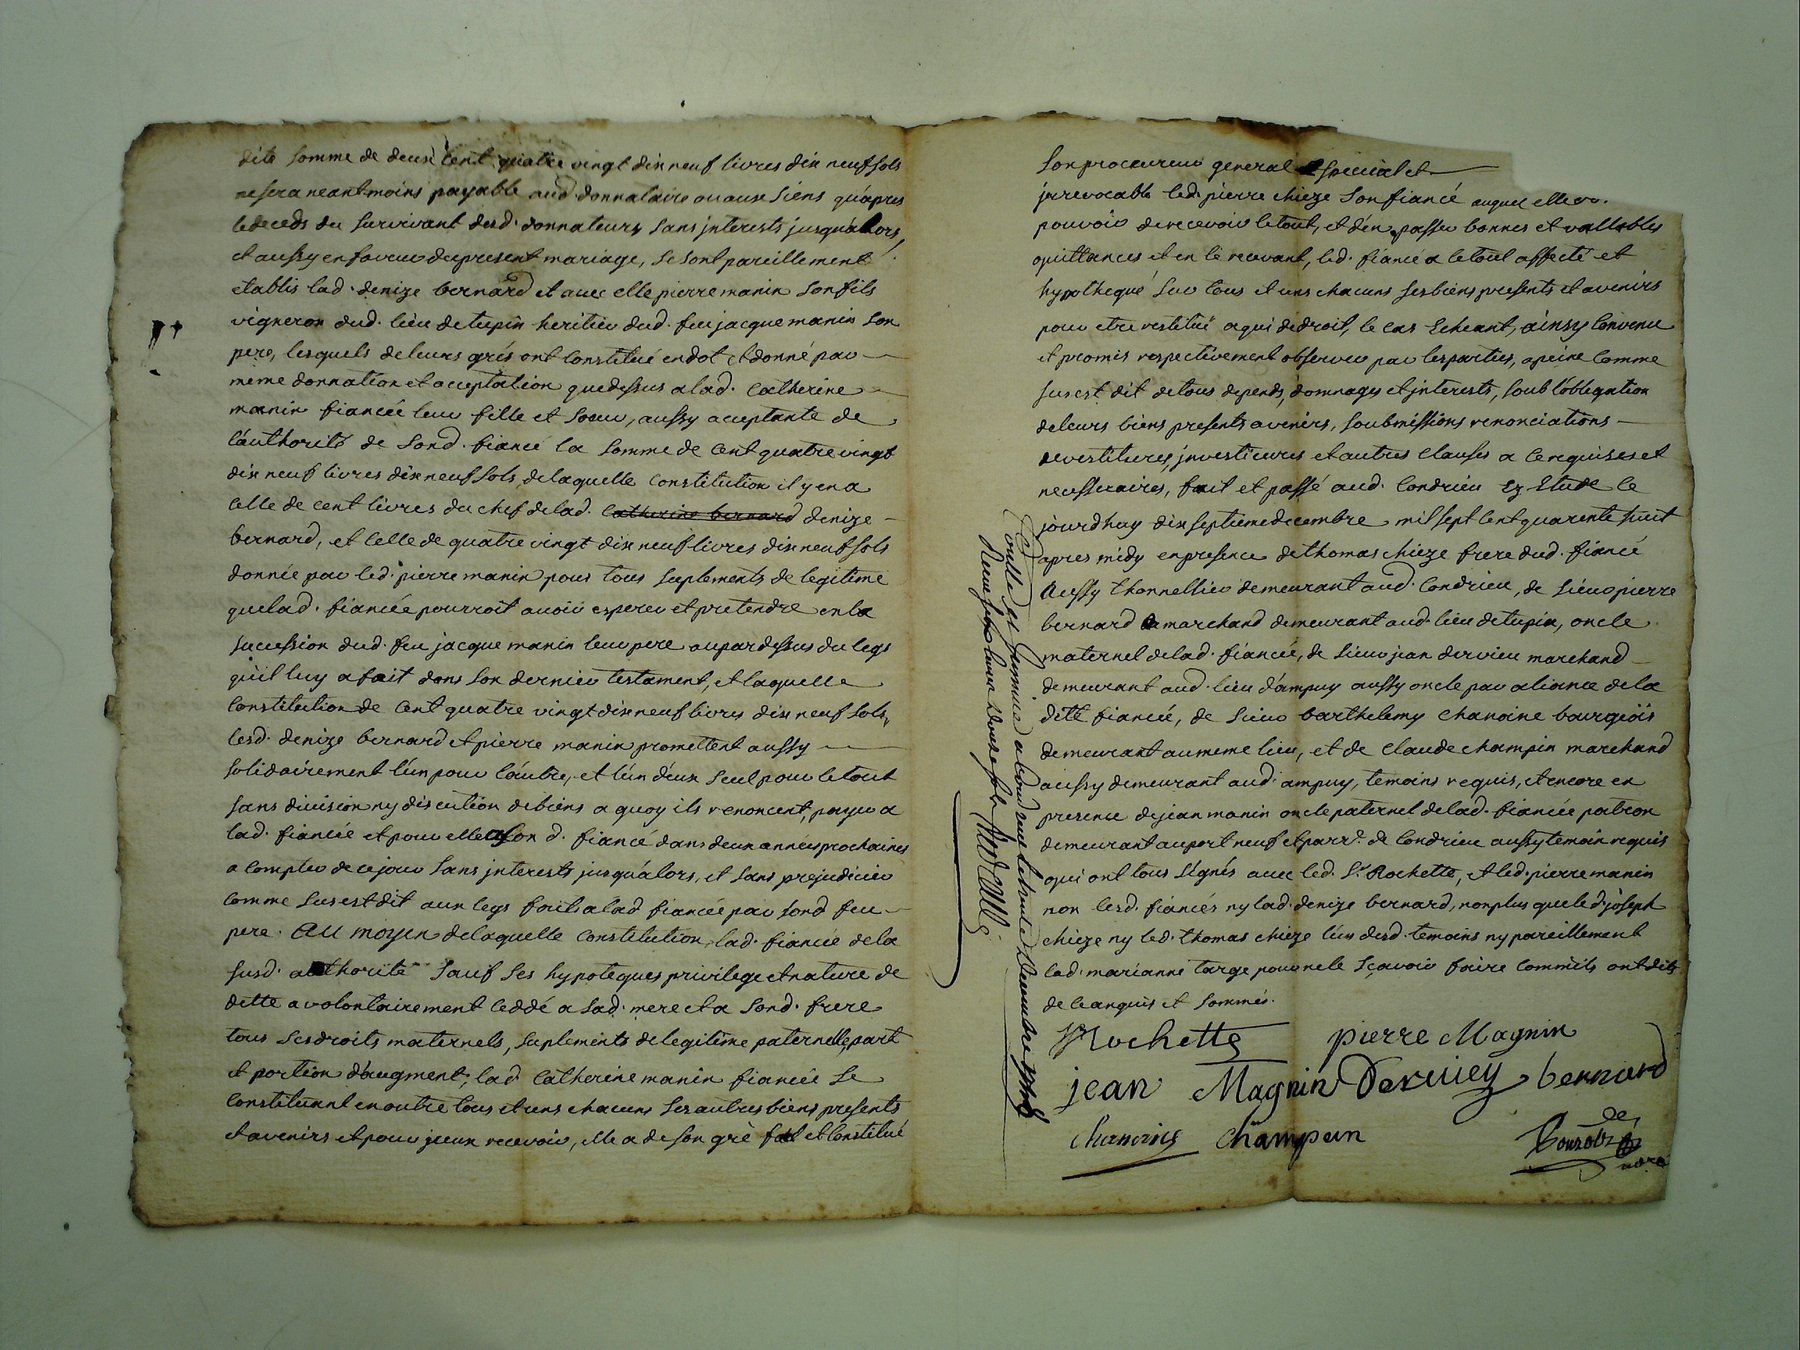 dite somme de deux cent quatre vingt dix neuf livres dix neuf sols
ne sera neantmoins payable aud. donnataire ou aux siens qu'apres
le deceds du survivant desd. donnateurs sans jnterests jusqu'alors,
et aussy en faveur du present mariage, se sont pareillement
etablis lad. denize bernard et avec elle pierre manin son fils
vigneron dud. lieu de tupin heritier dud. feu jacque manin son
pere, lesquels de leurs grés ont constitué en dot et donné par
meme donnation et acceptation que dessus a lad. catherine
manin fiancée leur fille et soeur, aussy acceptante de
l'authorité de sond. fiancé la somme de cent quatre vingt
dix neuf livres dix neuf sols, de laquelle constitution il y en a
celle de cent livres du chef de lad. catherine bernard denize
bernard, et celle de quatre vingt dix neuf livres dix neuf sols
donnée par led. pierre manin pour tous suplements de legitime
que lad. fiancée pourroit avoir esperer et pretendre en la
succession dud. feu jacque manin leur pere au par dessus du legs
qu'il luy a fait dans son dernier testament, et laquelle
constitution de cent quatre vingt dix neuf livres dix neuf sols,
lesd. denize bernard et pierre manin promettent aussy
solidairement l'un pour l'autre, et l'un d'eux seul pour le tout
sans division ny discution de biens a quoy ils renoncent, payer a
lad. fiancée et pour elle a son d. fiancé dans deux années prochaines
a compter de ce jour sans jnterests jusqu'alors, et sans prejudicier
comme sus est dit aux legs faits a lad fiancée par sond feu
pere. Au moyen de laquelle constitution, lad. fiancée de la
susd. authorité sauf ses hypoteques privilege et nature de
dette a volontairement ceddé a sad. mere et a sond. frere
tous ses droits maternels, suplements de legitime paternelle, part
et portion d'augment, lad catherine manin fiancée se
constituant en outre tous et uns chacuns ses autres biens presents
et avenirs et pour jceux recevoir, elle a de son gré fait et constitué
son procureur general et special et
jrrevocable led. pierre chieze son fiancé auquel elle
pouvoir de recevoir le tout, et d'en passer bonnes et vallables
quittances et en le recevant, led. fiancé a le tout affecté et
hypothequé sur tous et uns chacuns ses biens presents et avenirs
pour etre restitué a qui de droit, le cas echeant, ainsy convenu
et promis respectivement observer par les parties, a peine comme
sus est dit de tous depends, dommages et jnterests, soub l'obligation
de leurs biens presents avenirs, soubmissions renonciations
revestitures, jnvestitures et autres clauses a ce requises et
necessaires, fait et passé aud. Condrieu ez Etude le
jourdhuy dix septieme decembre mil sept cent quarente huit
apres midy en presence de thomas chieze frere dud. fiancé
Aussy thonnellier demeurant aud. Condrieu, de sieur pierre
bernard marchand demeurant aud. lieu de tupin, oncle
maternel de lad. fiancée, de sieur jean dervieu marchand
demeurant aud. lieu d'ampuy aussy oncle par aliance de la
ditte fiancée, de sieur barthelemy chanoine bourgeois
demeurant au meme lieu, et de claude champin marchand
aussy demeurant aud. ampuy, temoins requis, et encore en
presence de jean manin oncle paternel de lad. fiancée patron
demeurant au port neuf et parr.e de Condrieu aussy temoin requis
qui ont tous signés avec led. Sr Rochette, et led. pierre manin
non lesd. fiancés ny lad. denize bernard, non plus que led. joseph
chieze ny led. thomas chieze l'un desd. temoins ny pareillement
lad. marianne targe pour ne le sçavoir faire comm'ils ont dits
de ce anquis et sommés.
Rochette pierre Magnin
jean Magnin Dervieu bernard
chanoine champin